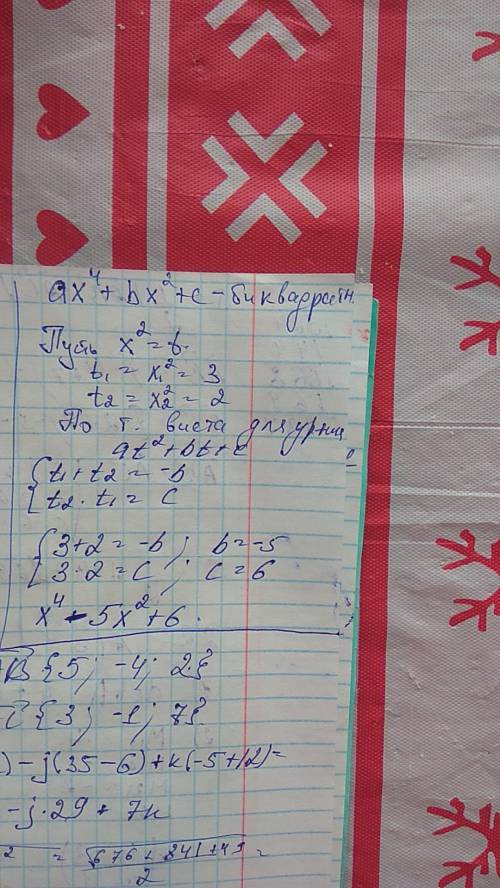 ax⁴ + bx² + c - биквадратн.
Пусть x² = t.
t₁ = x₁² = 3
t₂ = x₂² = 2
По т. виета для урния
at² + bt + c
{t₁ + t₂ = -b
{t₂ · t₁ = c
{3 + 2 = -b ; b = -5
{3 · 2 = c ; c = 6
x⁴ - 5x² + 6.
{5; -4; 2}
{3; -1; 7}
) - j(35-6) + k(-5+12) =
- j·29 + 7k
2 = √676 + 841 + 49 =
2